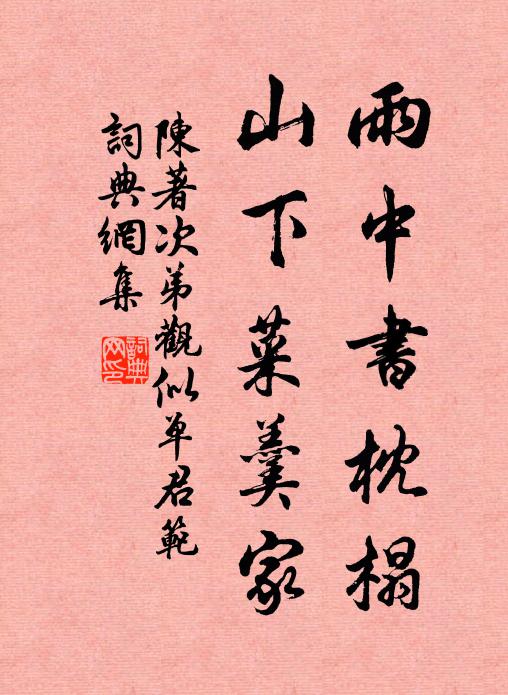 雨中書枕榻
山下菜羹家
陳著次弟觀似單君範
詞典網集
詞典網印